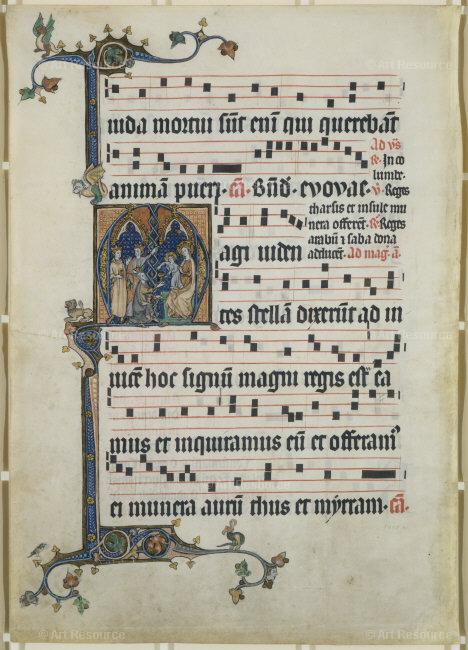 © Art Resource
iuda mortui sūt eni qui querebāt
Ad
In co
animā pueri. Bn̄d. evovae. Reges
tharsis et insule mu
nera offerēt. Reges
arabū & saba dona
adducēt. Ad mag. ā.
Magi viden
tes stellā dixerūt ad in
uicē hoc signū magni regis est ea
mus et inquiramus eū et offeramꝰ
ei munera aurū thus et myrram.
© Art Resource
© Art Resource